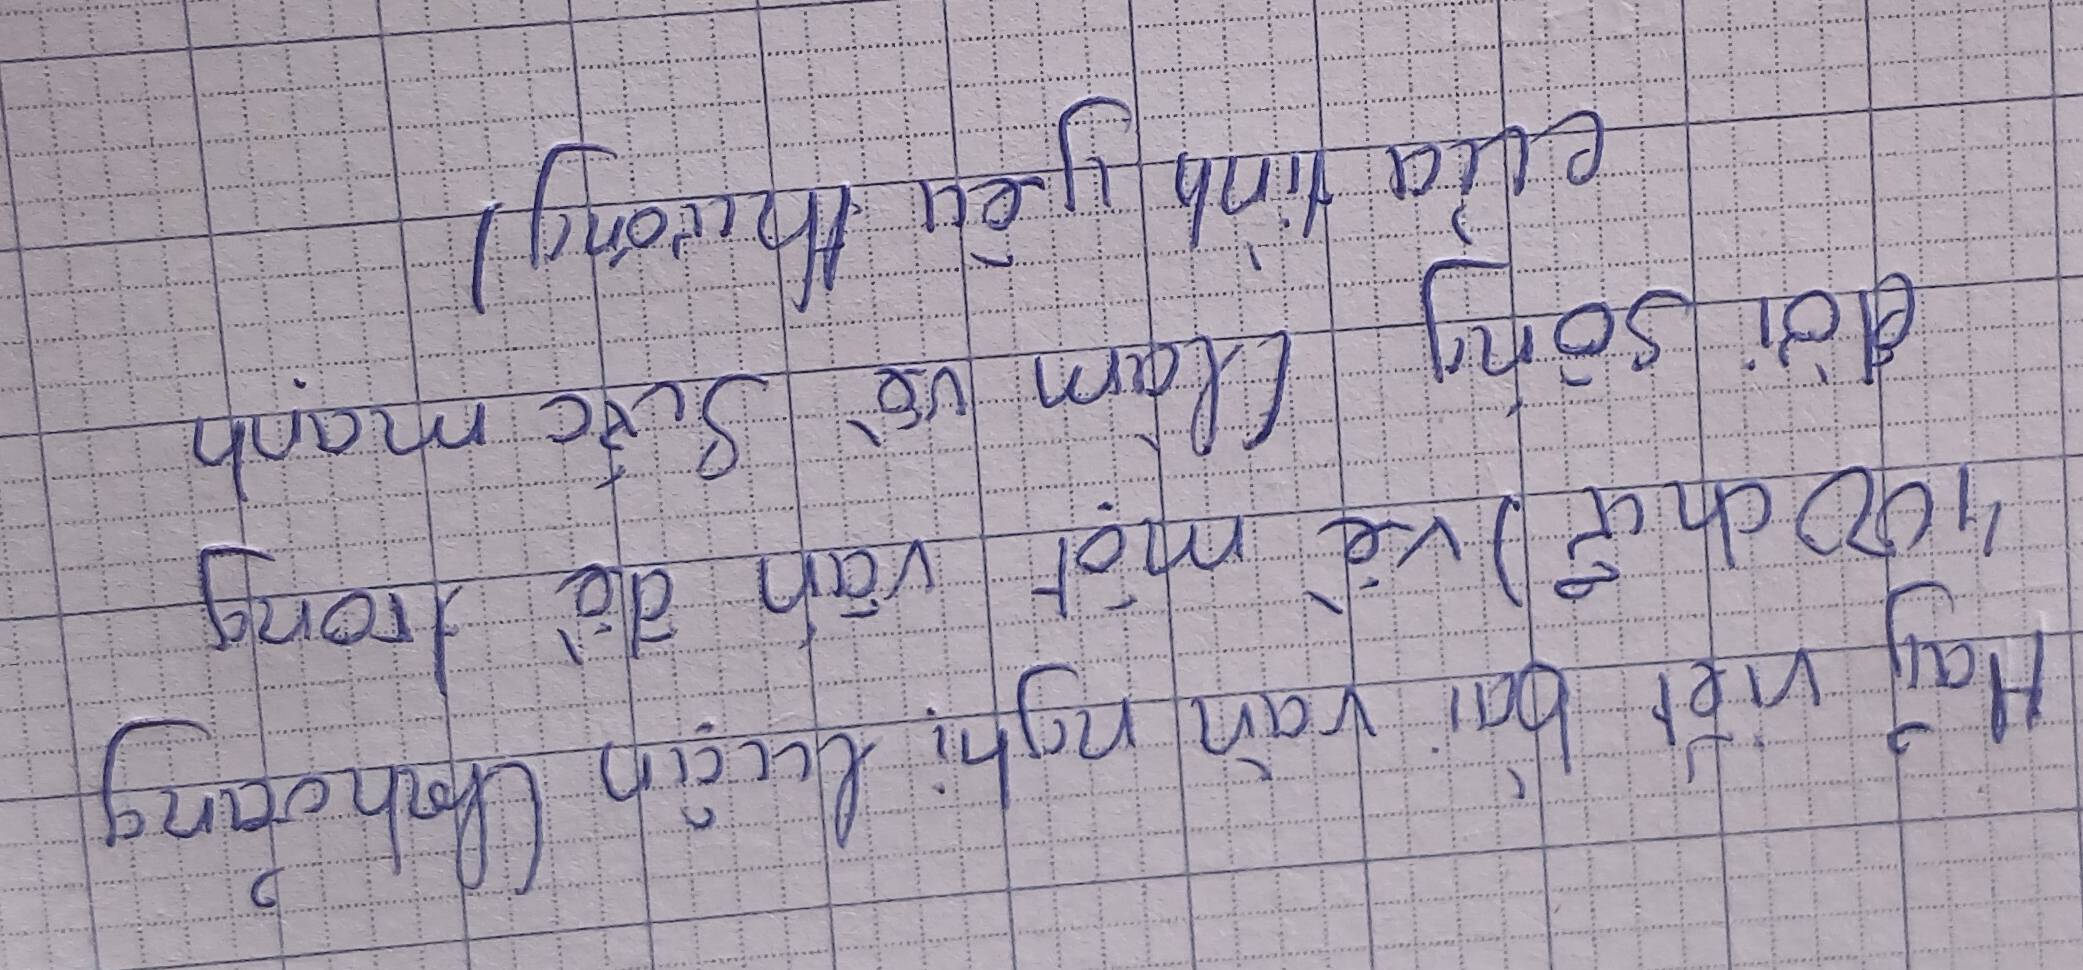 Hãy viết bài văn nghị luận (khoảng
400 chữ) về một vấn đề trong
đời sống (làm về sức mạnh
của tình yêu thương)